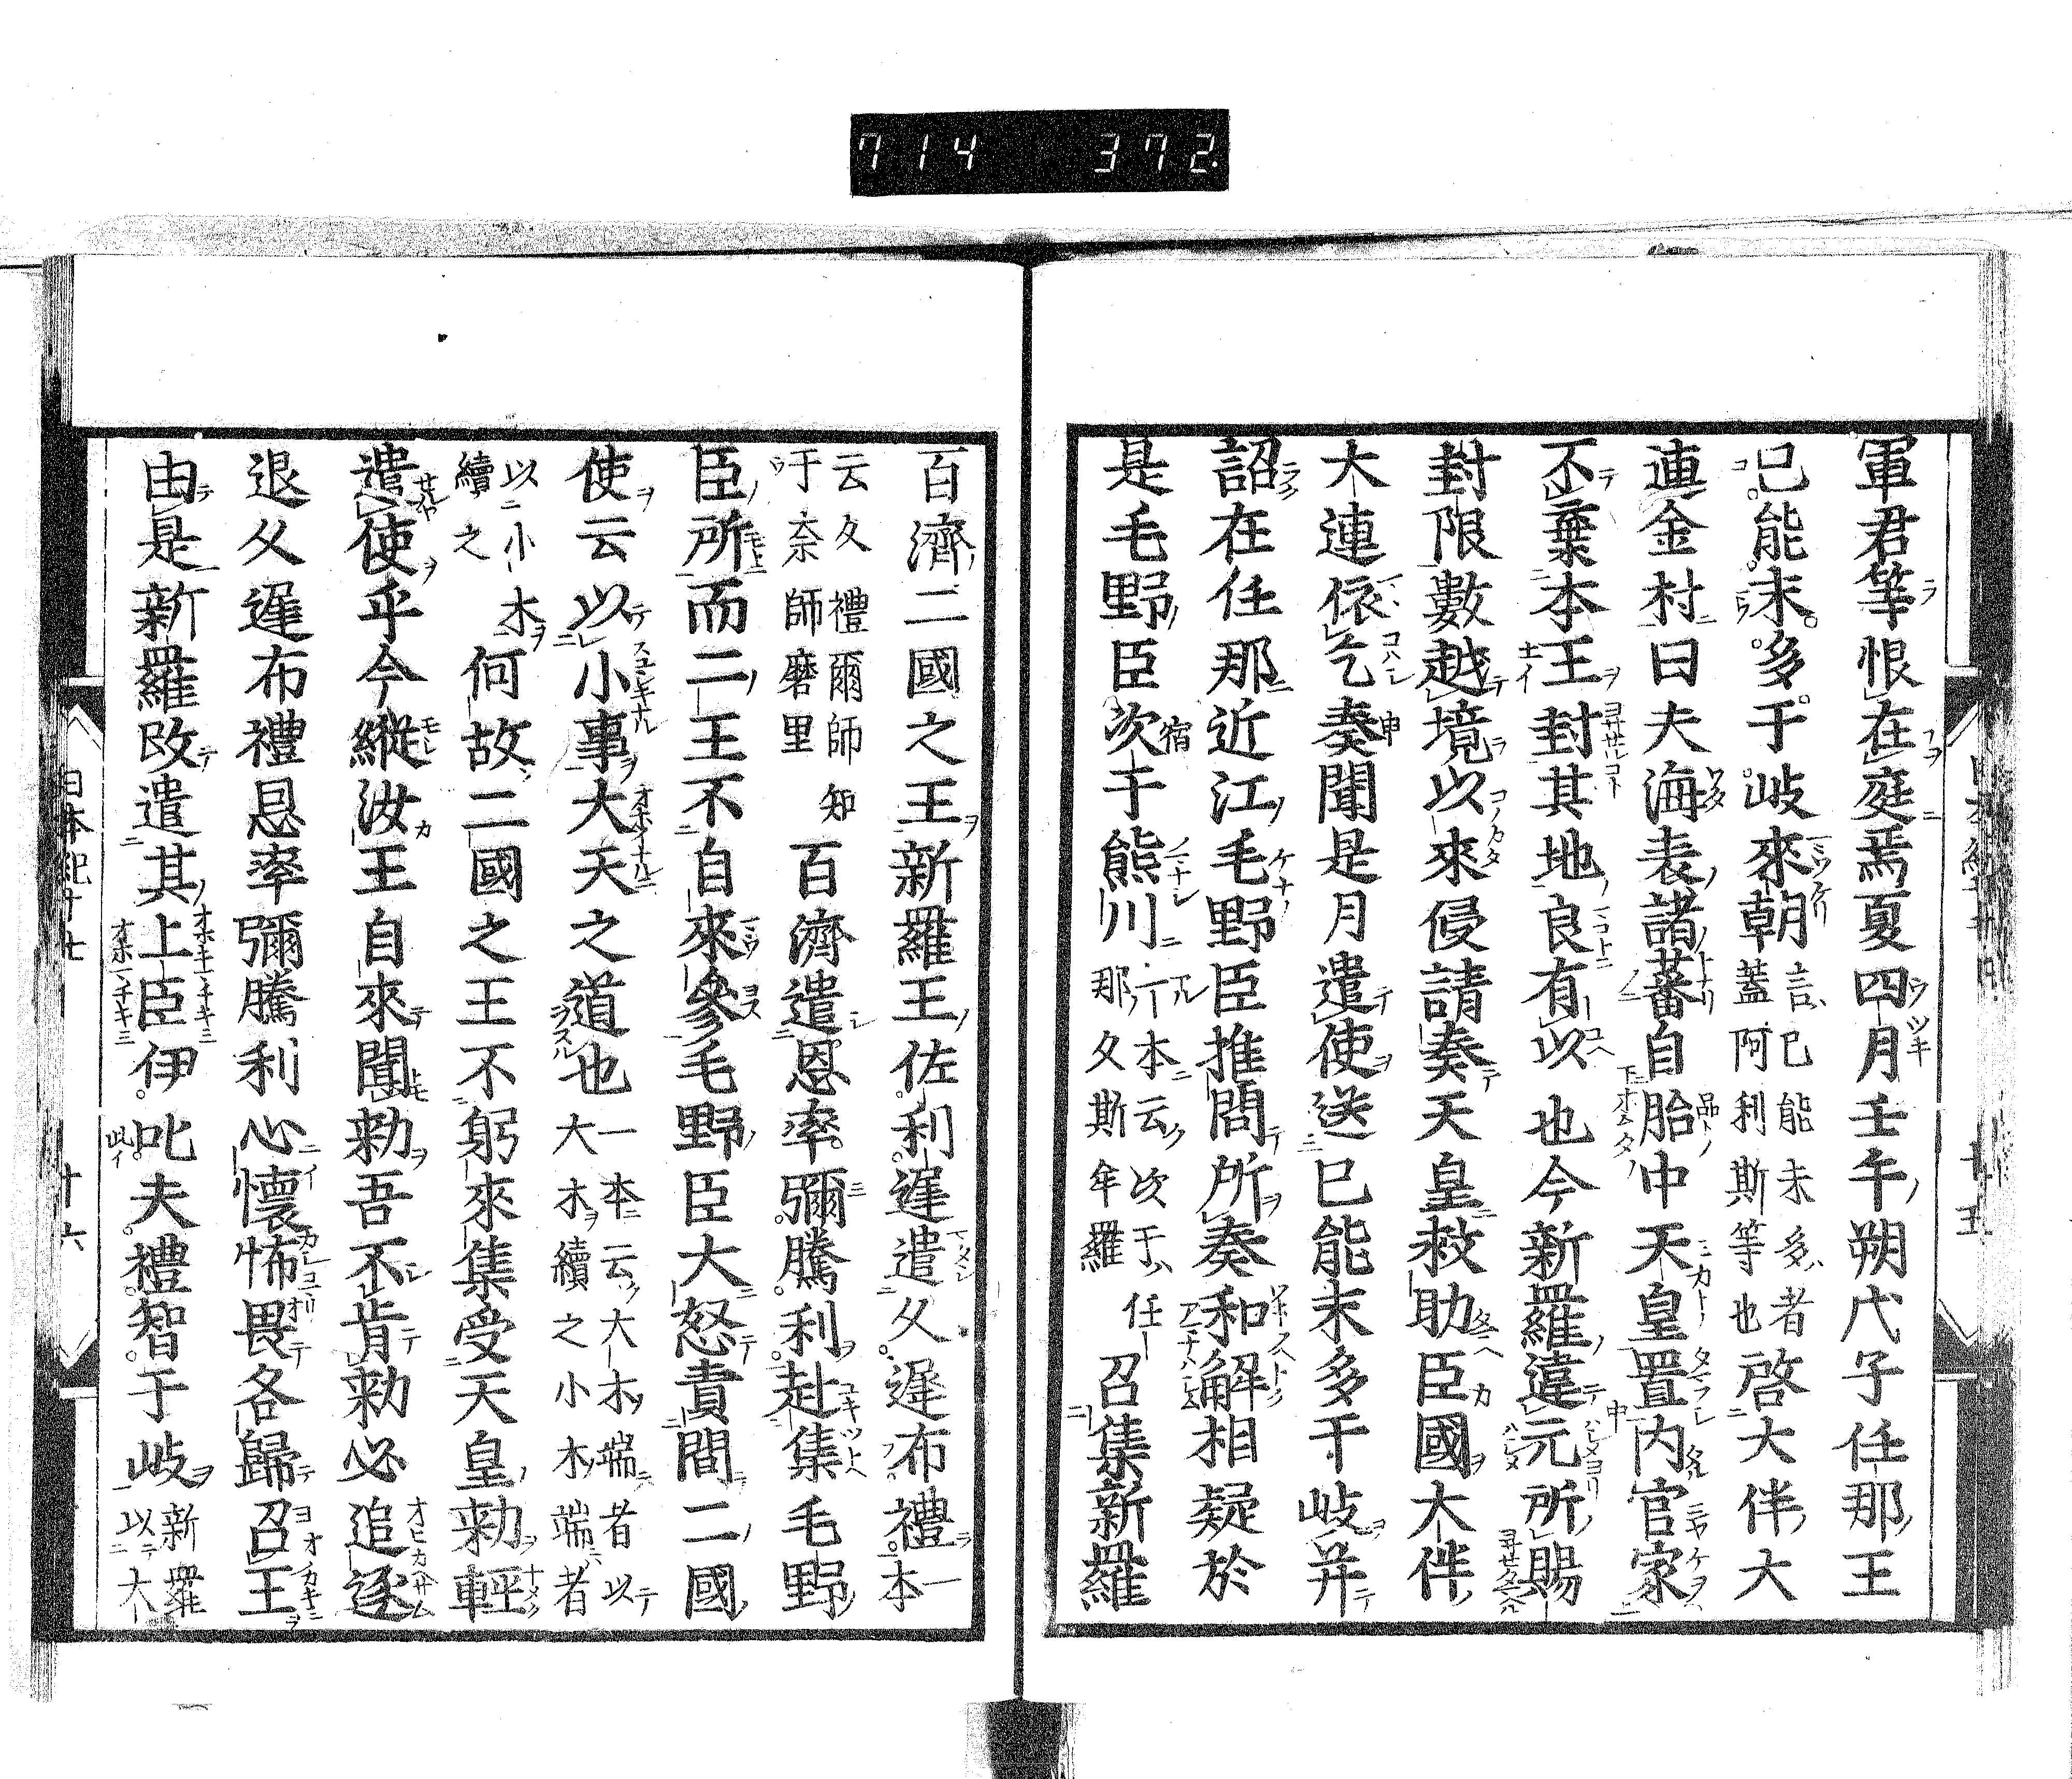 714 372
軍君等恨在庭焉夏四月壬午朔戊子任那王
己能末多于岐來朝言己能末多者蓋阿利斯等也啓大伴大
連金村曰夫海表諸蕃自胎中天皇置内官家
不棄本王封其地良有以也今新羅違元所賜
封限數越境以來侵請奏天皇救助臣國大伴
大連依乞奏聞是月遣使送己能末多干岐并
詔在任那近江毛野臣推問所奏和解相疑於
是毛野臣次于熊川一本云次于任那久斯牟羅召集新羅
百濟二國之王新羅王佐利遲遣久遲布禮一本
云久禮爾師知于奈師磨里百濟遣恩率彌騰利赴集毛野
臣所而二王不自來參毛野臣大怒責問二國
使云以小事大天之道也一本云大木端者以大木續之小木端者
以小木續之何故二國之王不躬來集受天皇勅輕
遣使乎今縱汝王自來聞勅吾不肯勅必追逐
退久遲布禮恩率彌騰利心懷怖畏各歸召王
由是新羅改遣其上臣伊叱夫禮智于岐新羅以大
日本紀十七
十六